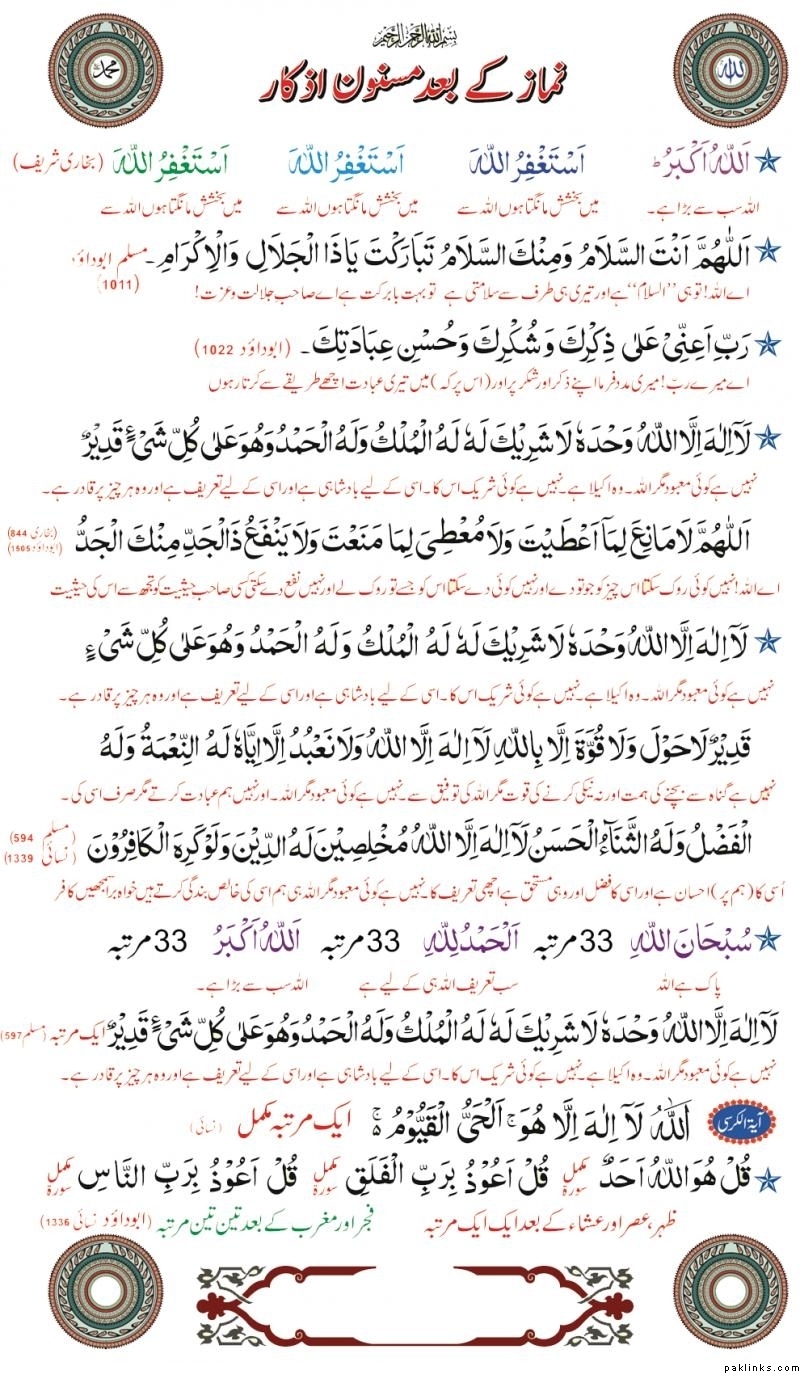 بسم الله الرحمن الرحيم
محمد
الله
نماز کے بعد مسنون اذکار
اَللّٰهُ اَكْبَرُ اَسْتَغْفِرُ اللّٰهَ اَسْتَغْفِرُ اللّٰهَ اَسْتَغْفِرُ اللّٰهَ (بخاری شریف)
اللہ سب سے بڑا ہے۔ میں بخشش مانگتا ہوں اللہ سے میں بخشش مانگتا ہوں اللہ سے میں بخشش مانگتا ہوں اللہ سے
اَللّٰهُمَّ اَنْتَ السَّلَامُ وَمِنْكَ السَّلَامُ تَبَارَكْتَ يَاذَا الْجَلَالِ وَالْاِكْرَامِ۔ مسلم ابوداؤد (1011)
اے اللہ! تو ہی "السلام" ہے اور تیری ہی طرف سے سلامتی ہے تو بہت بابرکت ہے اے صاحب جلالت و عزت!
رَبِّ اَعِنِّىْ عَلٰى ذِكْرِكَ وَشُكْرِكَ وَحُسْنِ عِبَادَتِكَ۔ (ابوداؤد 1022)
اے میرے رب! میری مدد فرما اپنے ذکر اور شکر پر اور (اس پر کہ) میں تیری عبادت اچھے طریقے سے کرتا رہوں
لَآ اِلٰهَ اِلَّا اللّٰهُ وَحْدَهٗ لَا شَرِيْكَ لَهٗ لَهُ الْمُلْكُ وَلَهُ الْحَمْدُ وَهُوَ عَلٰى كُلِّ شَىْءٍ قَدِيْرٌ
نہیں ہے کوئی معبود مگر اللہ۔ وہ اکیلا ہے۔ نہیں ہے کوئی شریک اس کا۔ اسی کے لیے بادشاہی ہے اور اسی کے لیے تعریف ہے اور وہ ہر چیز پر قادر ہے۔
اَللّٰهُمَّ لَا مَانِعَ لِمَآ اَعْطَيْتَ وَلَا مُعْطِىَ لِمَا مَنَعْتَ وَلَا يَنْفَعُ ذَا الْجَدِّ مِنْكَ الْجَدُّ (بخاری 844) (ابوداؤد 1505)
اے اللہ! نہیں کوئی روک سکتا اس چیز کو جو تو دے اور نہیں کوئی دے سکتا اس کو جسے تو روک لے اور نہیں نفع دے سکتی کسی صاحب حیثیت کو تجھ سے اس کی حیثیت
لَآ اِلٰهَ اِلَّا اللّٰهُ وَحْدَهٗ لَا شَرِيْكَ لَهٗ لَهُ الْمُلْكُ وَلَهُ الْحَمْدُ وَهُوَ عَلٰى كُلِّ شَىْءٍ
نہیں ہے کوئی معبود مگر اللہ۔ وہ اکیلا ہے۔ نہیں ہے کوئی شریک اس کا۔ اسی کے لیے بادشاہی ہے اور اسی کے لیے تعریف ہے اور وہ ہر چیز پر قادر ہے۔
قَدِيْرٌ لَا حَوْلَ وَلَا قُوَّةَ اِلَّا بِاللّٰهِ لَآ اِلٰهَ اِلَّا اللّٰهُ وَلَا نَعْبُدُ اِلَّا اِيَّاهُ لَهُ النِّعْمَةُ وَلَهُ
نہیں ہے گناہ سے بچنے کی ہمت اور نہ نیکی کرنے کی قوت مگر اللہ کی توفیق سے۔ نہیں ہے کوئی معبود مگر اللہ۔ اور نہیں ہم عبادت کرتے مگر صرف اسی کی۔
الْفَضْلُ وَلَهُ الثَّنَاءُ الْحَسَنُ لَآ اِلٰهَ اِلَّا اللّٰهُ مُخْلِصِيْنَ لَهُ الدِّيْنَ وَلَوْ كَرِهَ الْكَافِرُوْنَ (مسلم 594) (نسائی 1339)
اُسی کا (ہم پر) احسان ہے اور اسی کا فضل اور وہی مستحق ہے اچھی تعریف کا۔ نہیں ہے کوئی معبود مگر اللہ ہی ہم اسی کی خالص بندگی کرتے ہیں خواہ برا سمجھیں کافر
سُبْحَانَ اللّٰهِ 33 مرتبہ اَلْحَمْدُ لِلّٰهِ 33 مرتبہ اَللّٰهُ اَكْبَرُ 33 مرتبہ
پاک ہے اللہ سب تعریف اللہ ہی کے لیے ہے اللہ سب سے بڑا ہے۔
لَآ اِلٰهَ اِلَّا اللّٰهُ وَحْدَهٗ لَا شَرِيْكَ لَهٗ لَهُ الْمُلْكُ وَلَهُ الْحَمْدُ وَهُوَ عَلٰى كُلِّ شَىْءٍ قَدِيْرٌ ایک مرتبہ (مسلم 597)
نہیں ہے کوئی معبود مگر اللہ۔ وہ اکیلا ہے۔ نہیں ہے کوئی شریک اس کا۔ اسی کے لیے بادشاہی ہے اور اسی کے لیے تعریف ہے اور وہ ہر چیز پر قادر ہے۔
آیۃ الکرسی اَللّٰهُ لَآ اِلٰهَ اِلَّا هُوَ ۚ اَلْحَىُّ الْقَيُّوْمُ ۚ ایک مرتبہ مکمل (نسائی)
قُلْ هُوَ اللّٰهُ اَحَدٌ مکمل سورۃ قُلْ اَعُوْذُ بِرَبِّ الْفَلَقِ مکمل سورۃ قُلْ اَعُوْذُ بِرَبِّ النَّاسِ مکمل سورۃ
ظہر، عصر اور عشاء کے بعد ایک ایک مرتبہ فجر اور مغرب کے بعد تین تین مرتبہ (ابوداؤد نسائی 1336)
paklinks.com